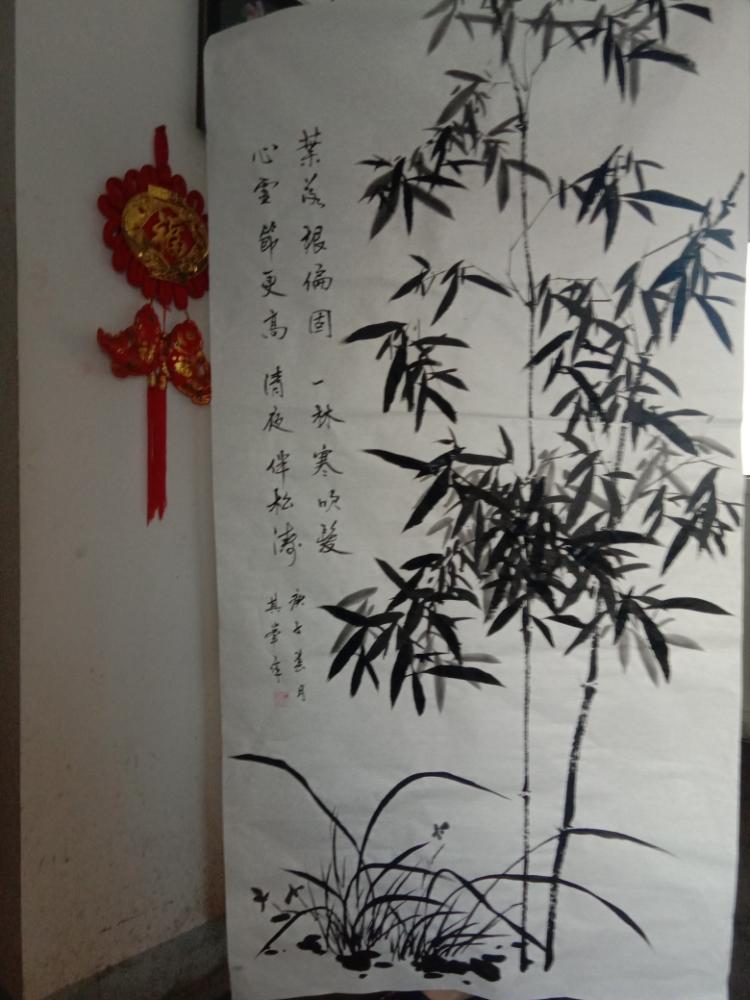 葉落根偏固 一林寒吹髮
心虚節更高 清夜伴松濤
庚子月
福